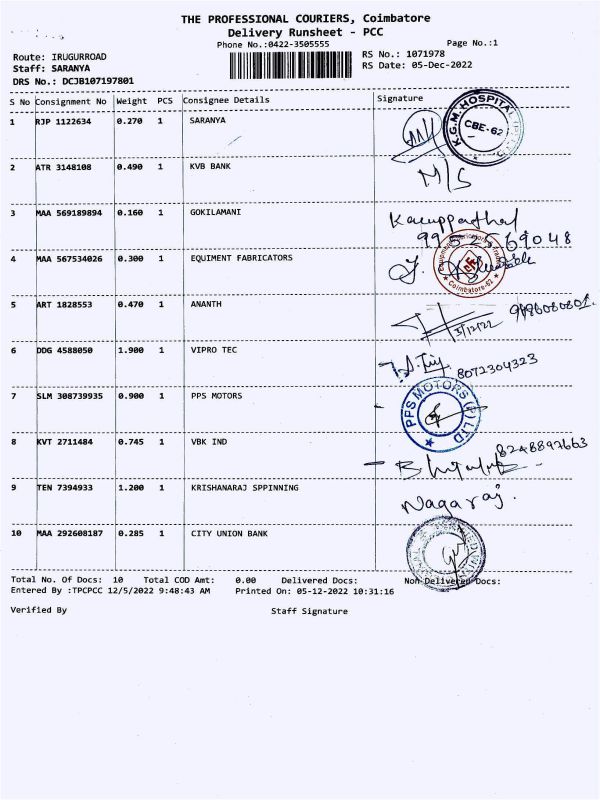 THE PROFESSIONAL COURIERS, Coimbatore
Delivery Runsheet - PCC
Phone No.:0422-3505555
Page No.:1
Route: IRUGURROAD
RS No.: 1071978
Staff: SARANYA
RS Date: 05-Dec-2022
DRS No.: DCJB107197801
S No Consignment No Weight PCS Consignee Details Signature
1 RJP 1122634 0.270 1 SARANYA
K.G.M HOSPITAL
CBE-62
2 ATR 3148108 0.490 1 KVB BANK
M/S
3 MAA 569189894 0.160 1 GOKILAMANI
Karuppathal
9952569048
4 MAA 567534026 0.300 1 EQUIMENT FABRICATORS
Coimbatore-62
5 ART 1828553 0.470 1 ANANTH
5/12/22
6 DDG 4588050 1.900 1 VIPRO TEC
8072304323
7 SLM 308739935 0.900 1 PPS MOTORS
PPS MOTORS (P) LTD
8 KVT 2711484 0.745 1 VBK IND
8248897663
9 TEN 7394933 1.200 1 KRISHANARAJ SPPINNING
Nagaraj.
10 MAA 292608187 0.285 1 CITY UNION BANK
Total No. Of Docs: 10 Total COD Amt: 0.00 Delivered Docs: Non Delivered Docs:
Entered By :TPCPCC 12/5/2022 9:48:43 AM Printed On: 05-12-2022 10:31:16
Verified By Staff Signature